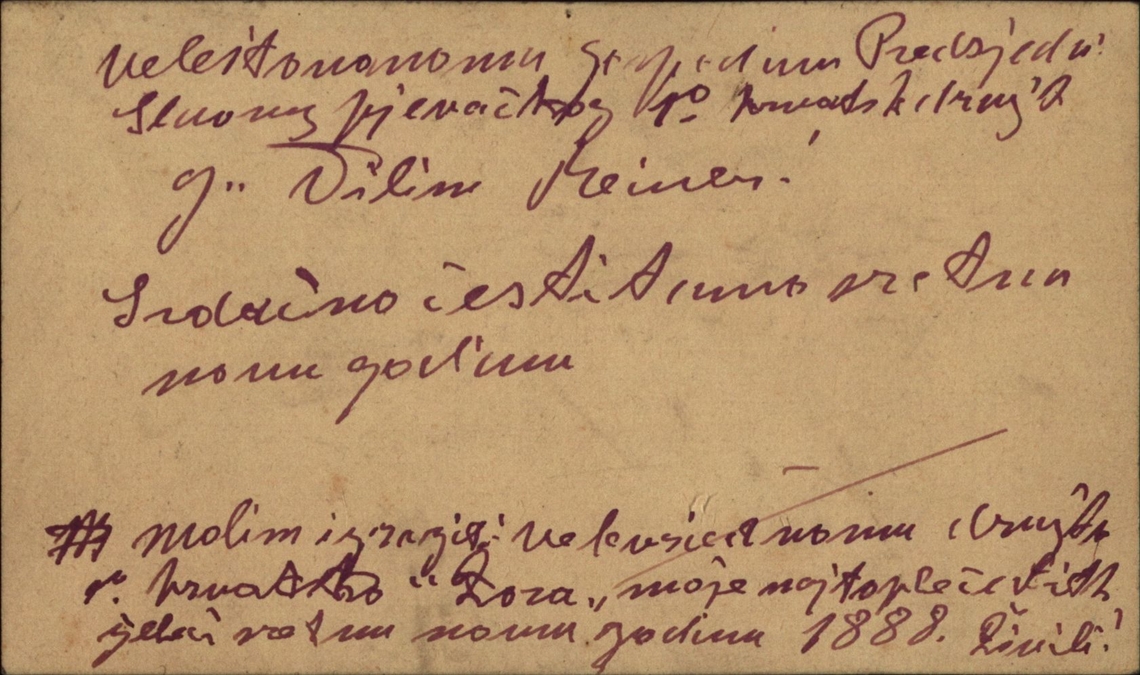 Veleštovanomu Gospodinu Predsjedni
slavnog pjevačkog 1º hrvatsk družtva
g„ Vilim Reiner!
Srdačno čestitamo sretnu
novu godinu
Molim izraziti velevriednomu družtvu
hrvatsko "Zora„ moje najtoplie čestit
želeći sretnu novu godinu 1888. Živili!